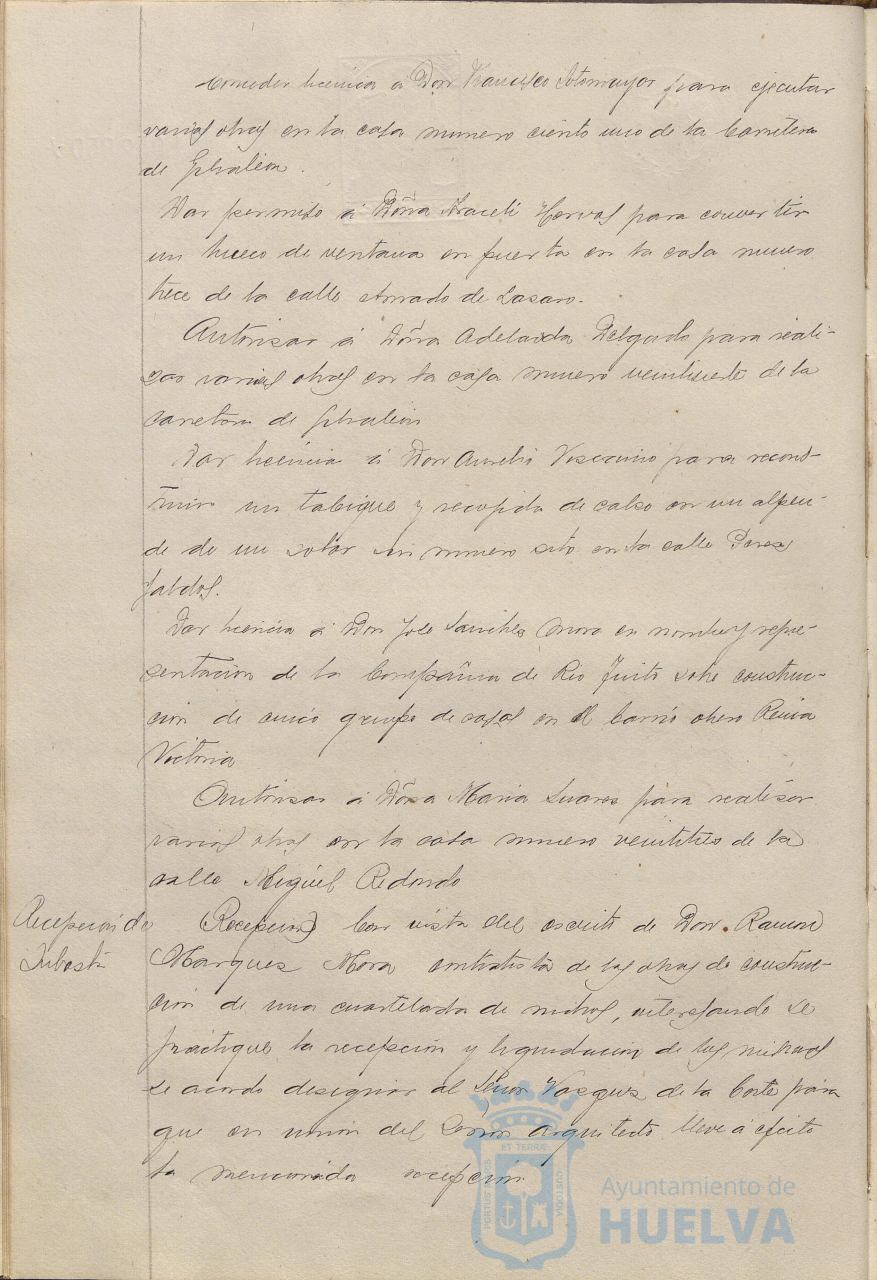 Conceder licencia á Don Francisco Sotomayor para ejecutar
varias obras en la casa numero ciento uno de la Carretera
de Gibraleon.
Dar permiso á Doña Araceli Hervas para convertir
un hueco de ventana en puerta en la casa numero
trece de la calle Amado de Lazaro.
Autorizar á Doña Adelaida Delgado para reali-
zar varias obras en la casa numero veintisiete de la
carretera de Gibraleon
Dar licencia á Don Aurelio Vizcaino para recons-
truir un tabique y recogida de calzo en un alpen-
de de un solar sin numero sito en la calle Perez
Galdos.
Dar licencia á Don Jose Sanchez Mora en nombre y repre-
sentacion de la Compañia de Rio Tinto sobre construc-
ción de cinco grupos de casas en el barrio obrero Reina
Victoria
Autorizar á Doña Maria Suarez para realizar
varias obras en la casa numero veintitres de la
calle Miguel Redondo
Recepcion de
Subasta
(Recepcion) Con vista del escrito de Don Ramon
Marquez Mora contratista de las obras de construc-
ción de una cuartelada de nichos, interesando se
practique la recepción y liquidación de las mismas
se acordo designar al Señor Vazquez de la Corte para
que en unión del Señor Arquitecto lleve á efecto
la mencionada recepción
PORTUS MARIS
ET TERRÆ
CUSTODIA
Ayuntamiento de
HUELVA